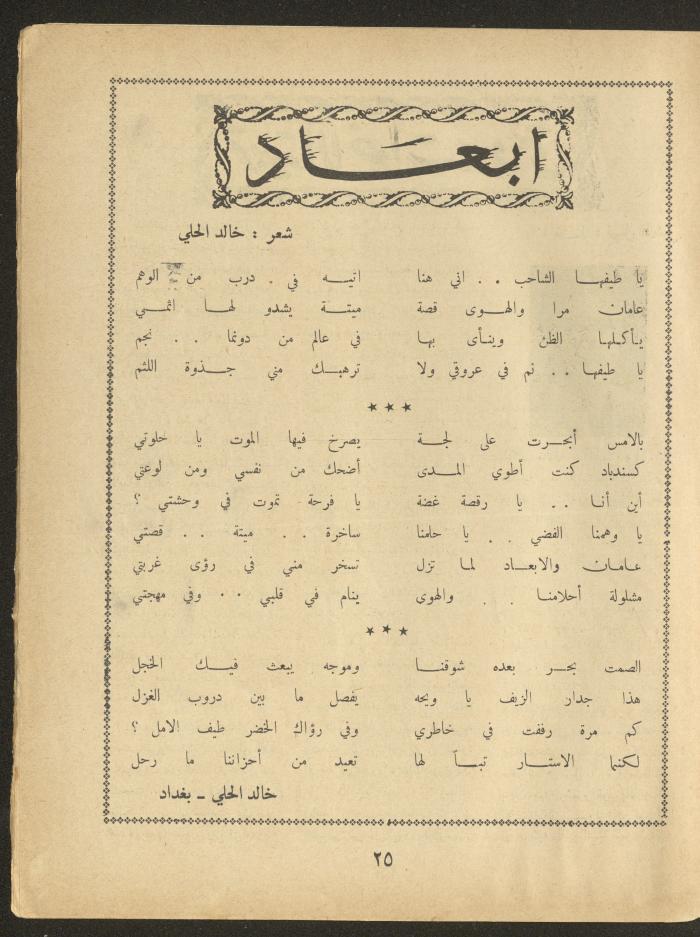 ابعاد
شعر : خالد الحلي
يا طيفها الشاحب . . اني هنا اتيه في . درب من الوهم
عامان مرا والهوى قصة ميتة يشدو لها اثمي
يأكلها الظن وينأى بها في عالم من دونما . . نجم
يا طيفها . . نم في عروقي ولا ترهبك مني جذوة اللثم
★ ★ ★
بالامس أبحرت على لجة يصرخ فيها الموت يا خلوتي
كسندباد كنت أطوي المدى أضحك من نفسي ومن لوعتي
أين أنا . . يا رقصة غضة يا فرحة تموت في وحشتي ؟
يا وهمنا الفضي . . يا حلمنا ساخرة . . ميتة . . قصتي
عامان والابعاد لما تزل تسخر مني في رؤى غربتي
مشلولة أحلامنا . . والهوى ينام في قلبي . . وفي مهجتي
★ ★ ★
الصمت بحر بعده شوقنا وموجه يبعث فيك الخجل
هذا جدار الزيف يا ويحه يفصل ما بين دروب الغزل
كم مرة رففت في خاطري وفي رؤاك الخضر طيف الامل ؟
لكنما الاستار تباً لها تعيد من أحزاننا ما رحل
خالد الحلي ـ بغداد
٢٥